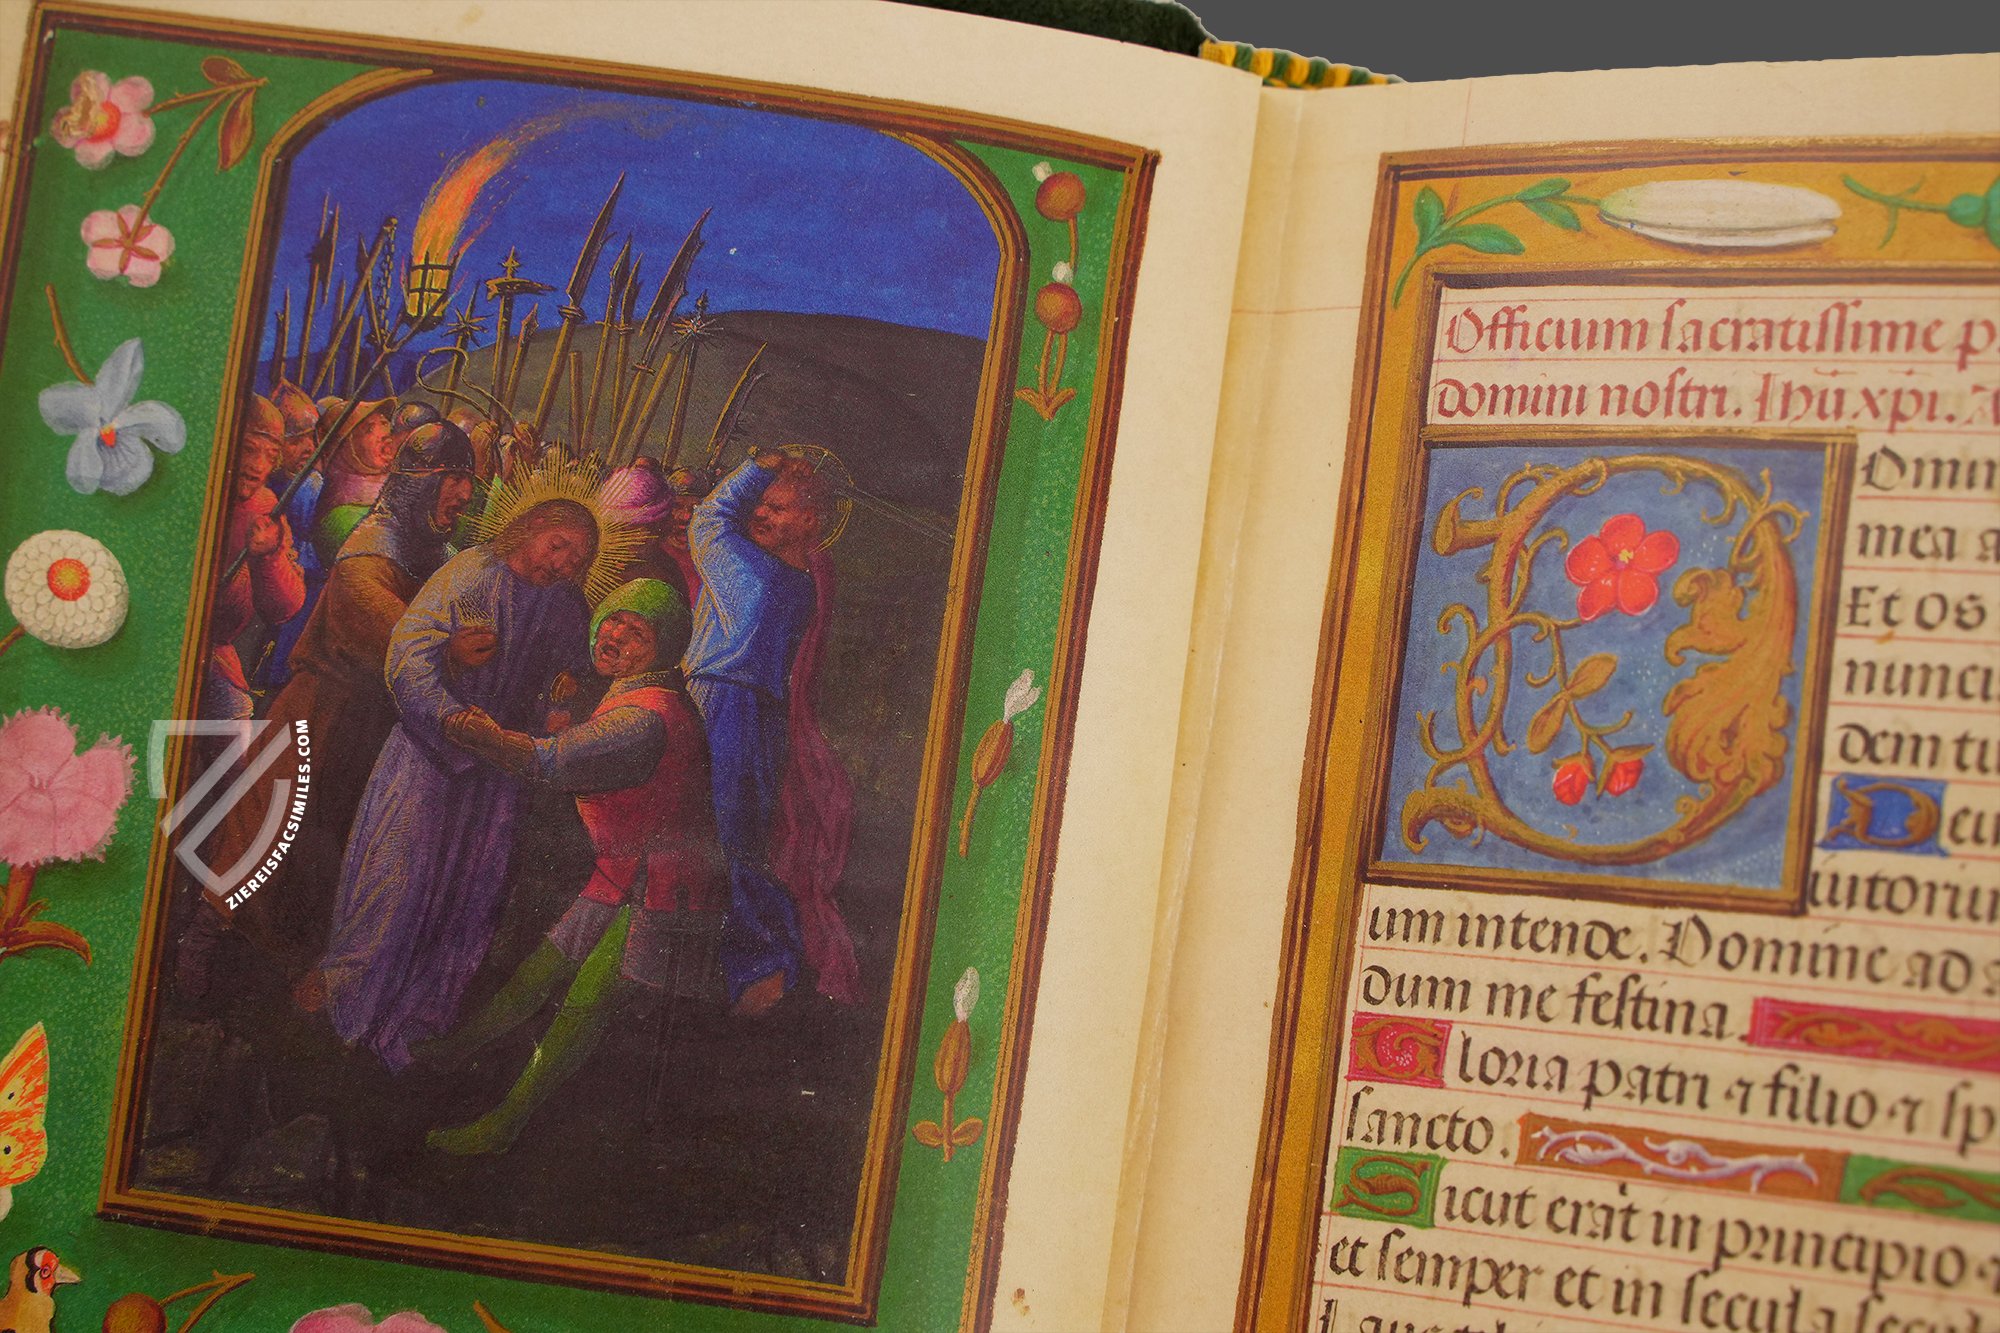 ZIEREISFACSIMILES.COM
Officium sacratissime p
domini nostri. Ihu xpi. A
Omin
mea a
Et os
nunci
dem tu
Deu
iutoriu
um intende. Domine ad a
dum me festina.
Gloria patri ⁊ filio ⁊ sp
sancto.
Sicut erat in principio ⁊
et semper et in secula secul